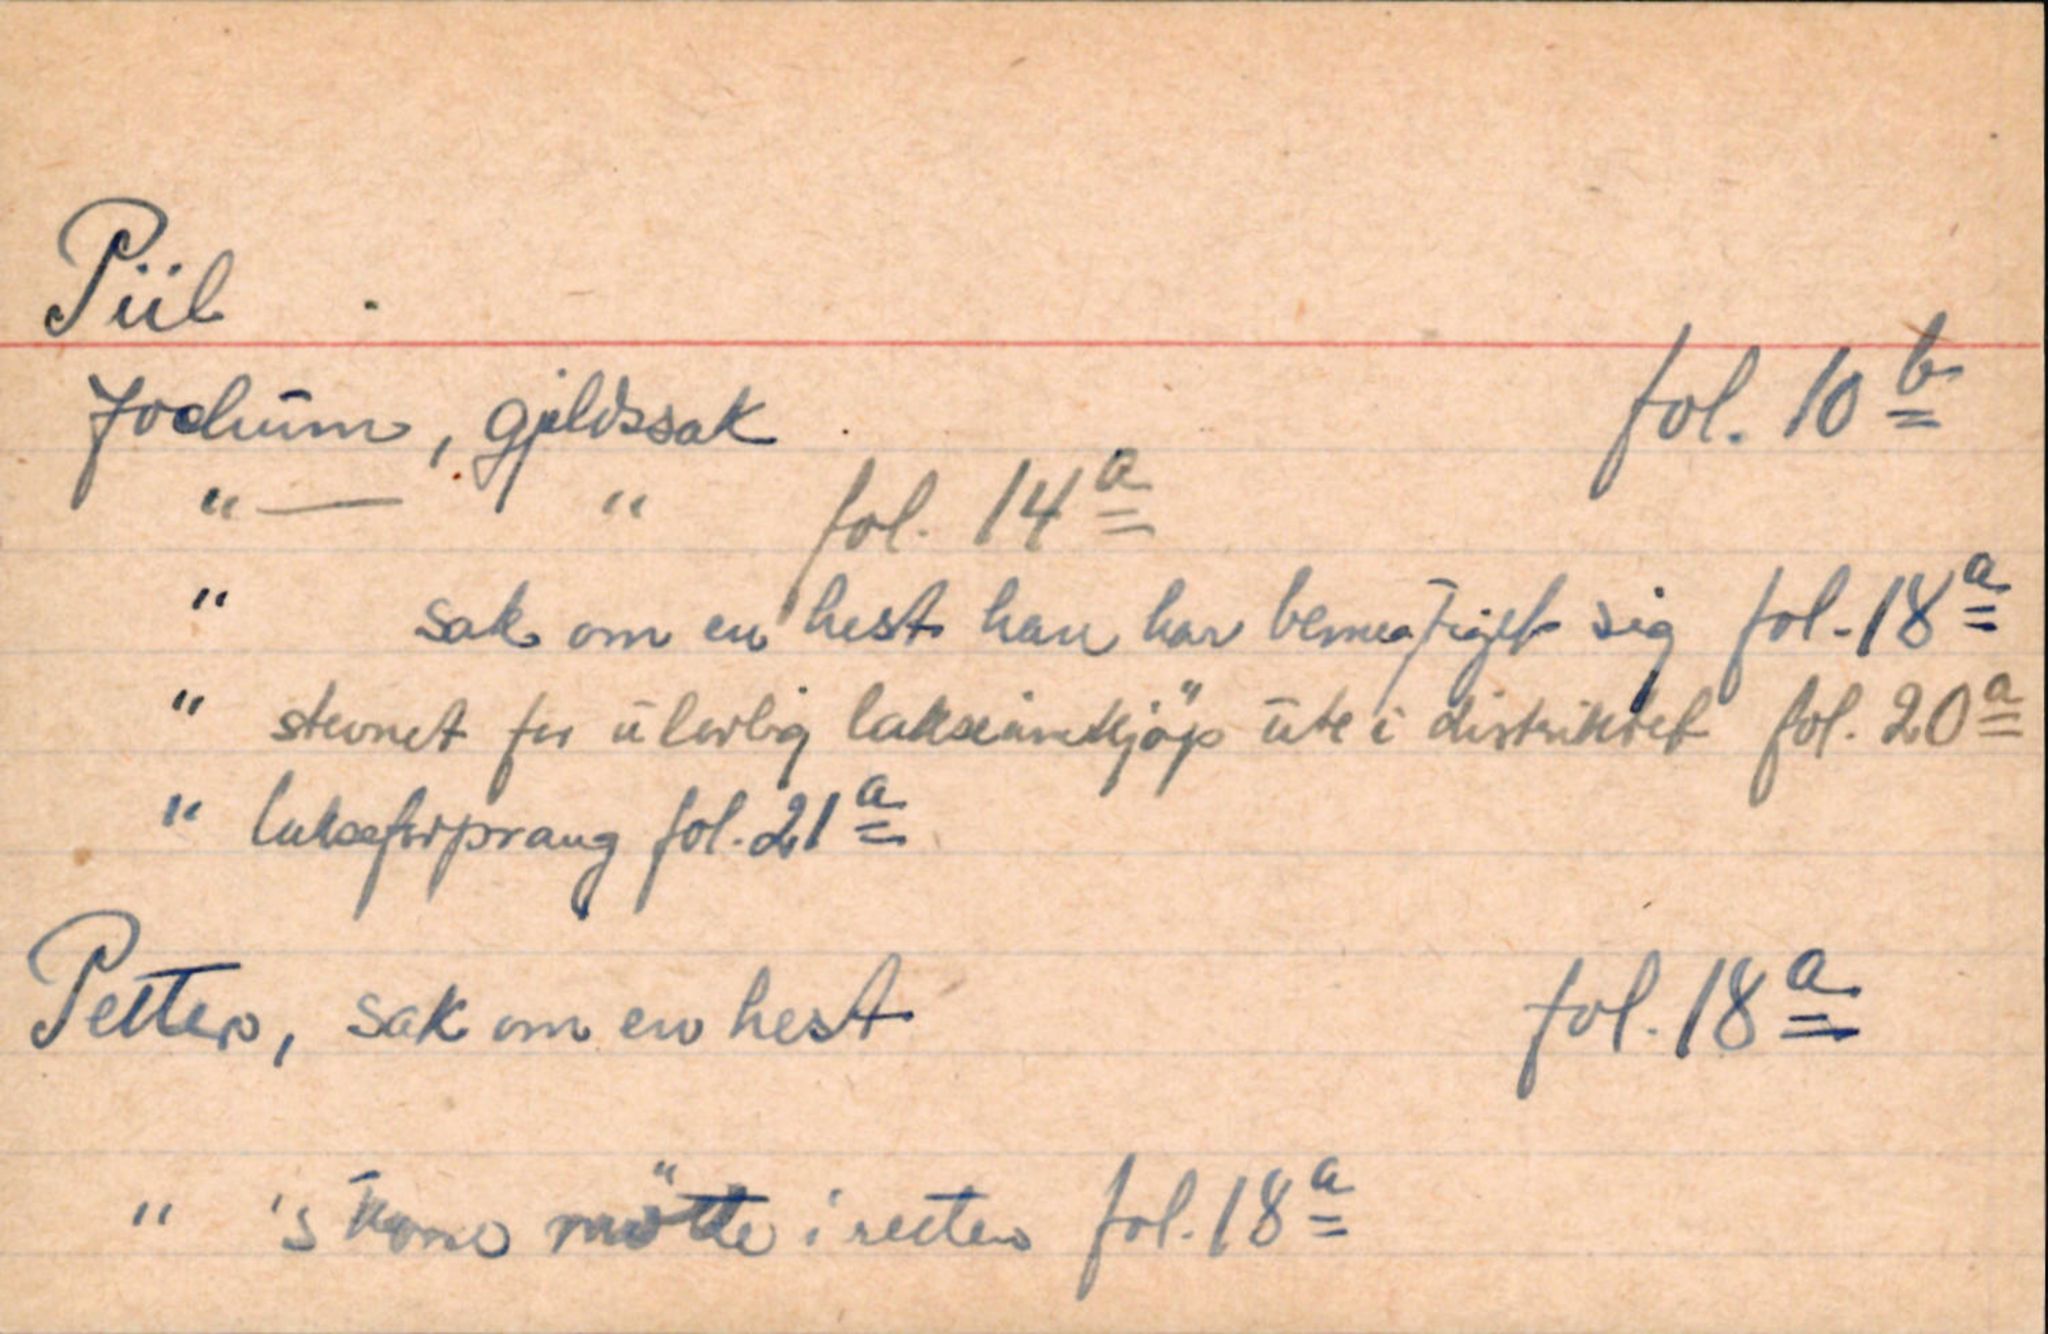 Piil
Jochum, gjeldssak fol. 10 b
"— " fol. 14 a
" sak om en hest han har bemægtiget sig fol. 18 a
" stevnet for ulovlig lakseinnkjöp ute i distriktet fol. 20 a
" lakseforprang fol. 21 a
Petter, sak om en hest fol. 18 a
" 's kone mötte i retten fol. 18 a